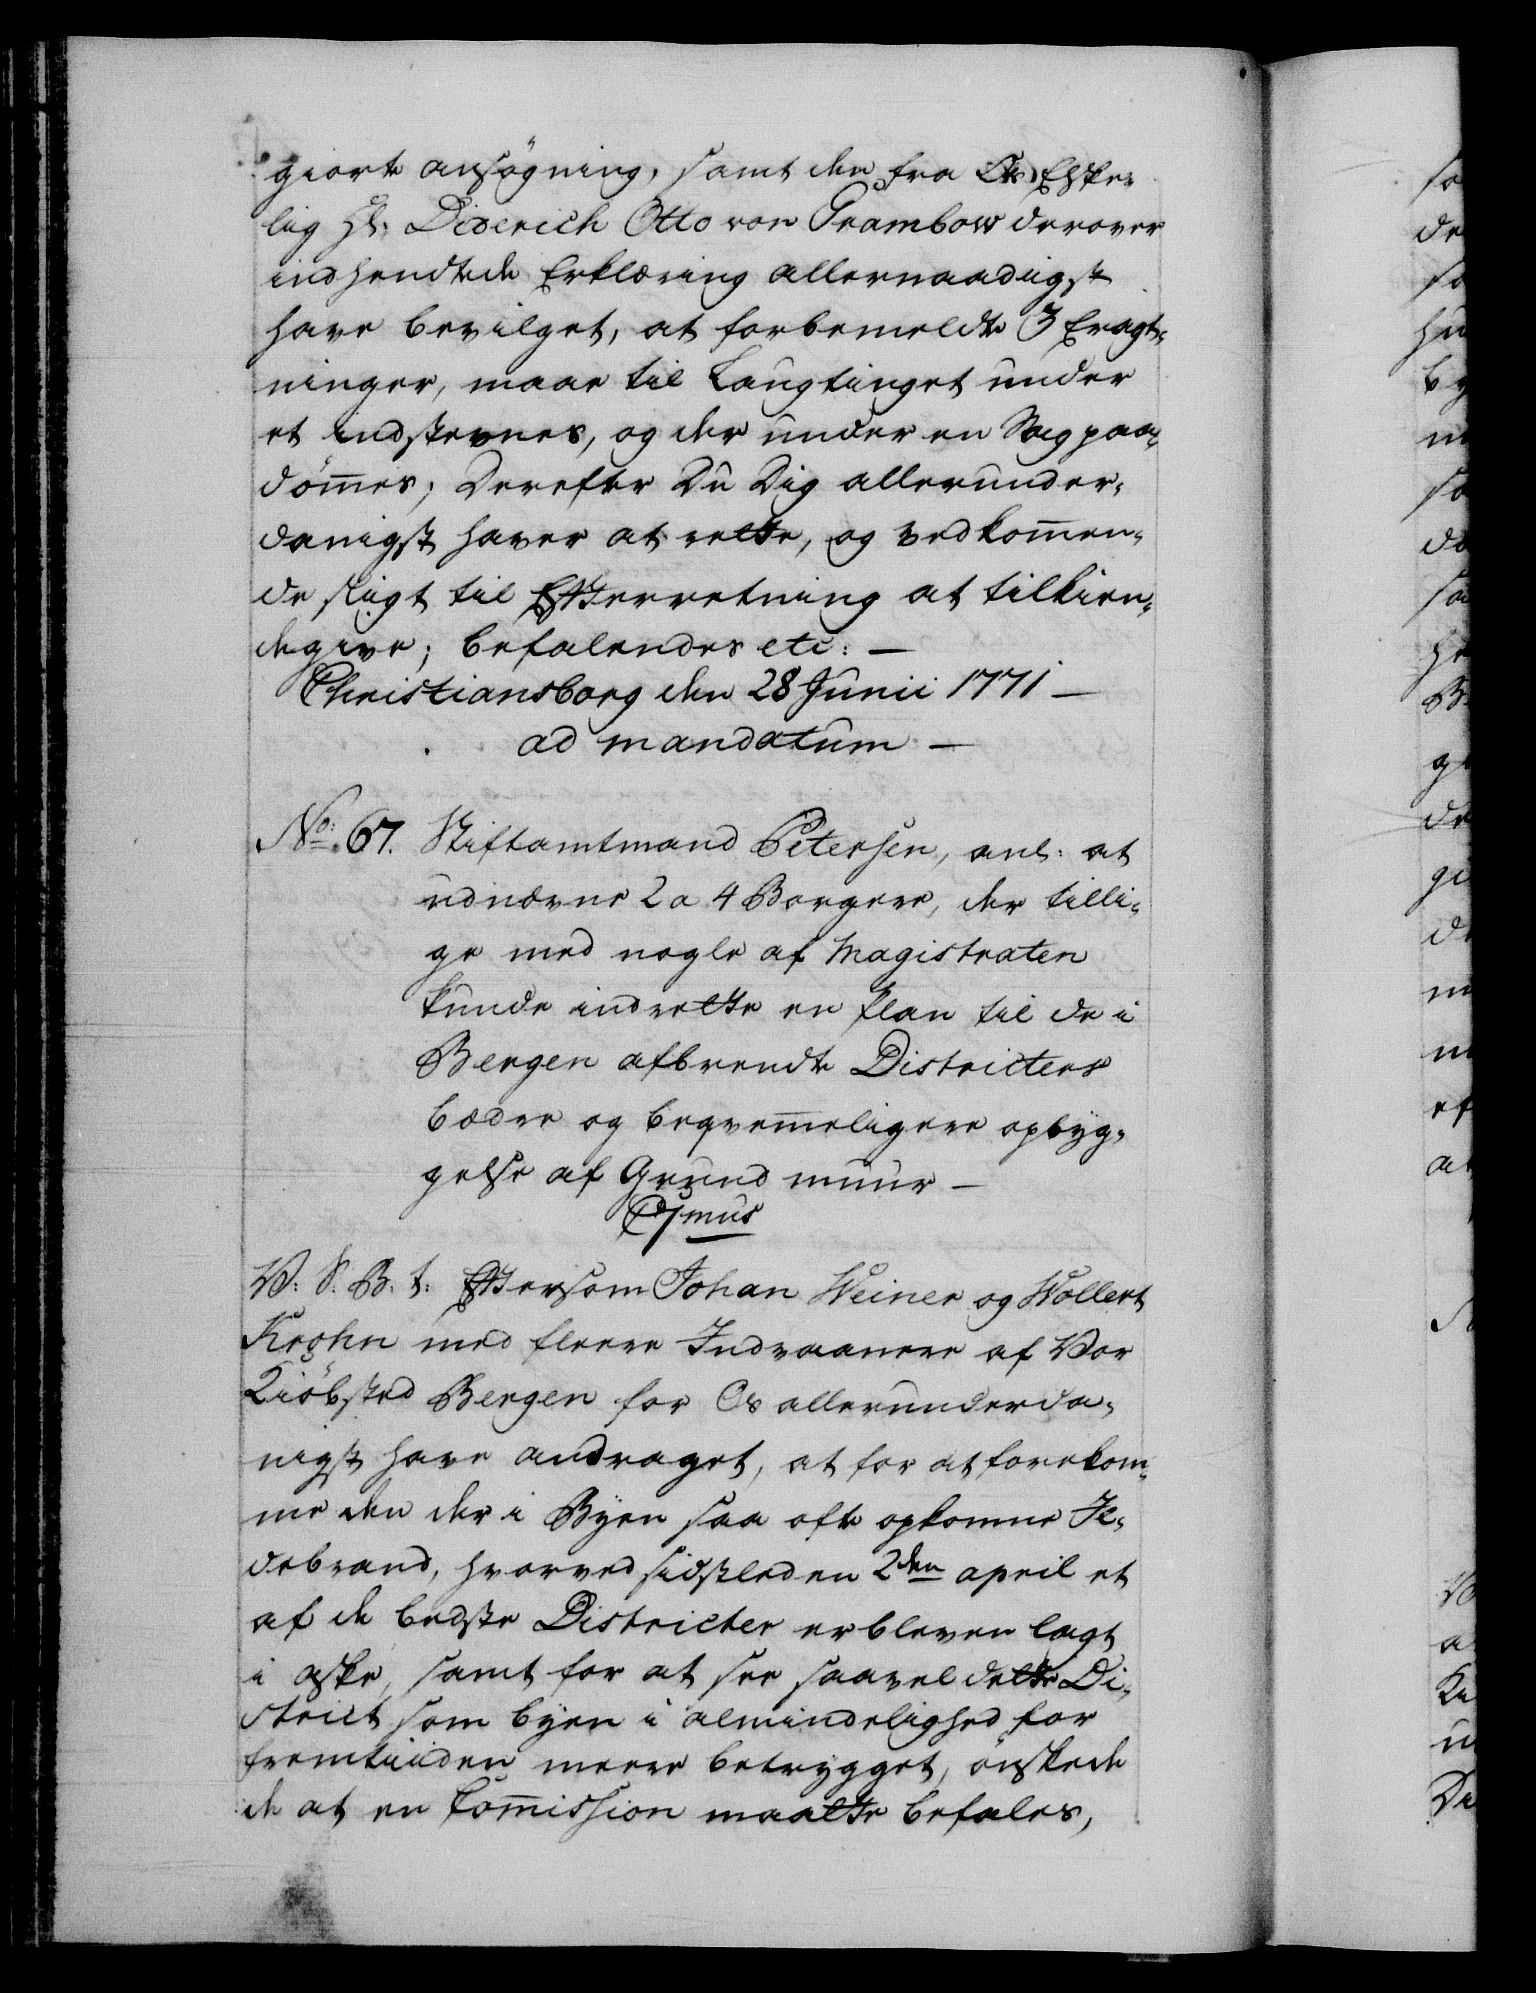 giorte ansögning, samt den fra Os Elske-
lig Hr: Diderich Otto von Grambow derover
indhendtede Erklæring allernaadigst
have bevilget, at forbemeldte 3 Eragt-
ninger, maae til Laugtinget under
et indstevnes, og der under en Sag paa-
dömes; Derefter Du Dig allerunder-
danigst haver at rette, og vedkomen-
de sligt til Efterretning at tilkien-
degive; befalendes etc: —
Christiansborg den 28 Junii 1771 —
ad mandatum —
No: 67. Stiftamtmand Petersen, anl: at
udnævne 2 a 4 Borgere, der tilli-
ge med nogle af Magistraten
kunde indrette en Plan til de i
Bergen afbrendte Districters
bædre og beqvemeligere opbyg-
gelse af Grund muur —
C7mus
V: S: B: t: Eftersom Johan Weiner og Wollert
Krohn med fleere Indvaanere af Vor
Kiöbsted Bergen for Os allerunderda-
nigst have andraget, at for at forekom-
me den der i Byen saa ofte opkomne Il-
debrand, hvorved sidstleden 2den april et
af de bedste Districter er bleven lagt
i aske, samt for at see saavel dette Di-
strict som byen i almindelighed for
fremtiiden meere betrygget, önskede
de at en Comission maatte befales,